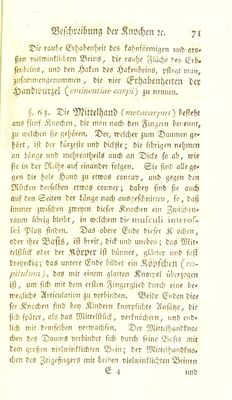 Beschreibung der Knochen ꝛc. 71
Die rauhe Erhabenheit des kahnförmigen und gro-
ßen vielwinklichten Beins, die rauhe Fläche des Erb-
senbeins, und den Haken des Hakenbeins, pflegt man,
zusammengenommen, die vier Erhabenheiten der
Handwurzel (eminentiae carpi) zu nennen.
§. 63. Die Mittelhand (metacarpus) besteht
aus fünf Knochen, die man nach den Fingern benennt,
zu welchen sie gehören. Der, welcher zum Daumen ge-
hört, ist der kürzeste und dickste; die übrigen nehmen
an Länge und mehrentheils auch an Dicke so ab, wie
sie in der Reihe auf einander folgen. Sie sind alle ge-
gen die hole Hand zu etwas concav, und gegen den
Rücken derselben etwas convex; dabey sind sie auch
auf den Seiten der Länge nach ausgeschnitten, so, daß
immer zwischen zweyen dieser Knochen ein Zwischen-
raum übrig bleibt, in welchem die musculi interos-
sei Platz finden. Das obere Ende dieser K ochen,
oder ihre Basis, ist breit, dick und uneben; das Mit-
telstück oder der Körper ist dünner, glätter und fast
dreyeckig; das untere Ende bildet ein Köpfchen (ca-
pitulum), das mit einem glatten Knorpel überzogen
ist, um sich mit dem ersten Fingerglied durch eine be-
wegliche Articulation zu verbinden. Beide Enden die-
ser Knochen sind bey Kindern knorplichte Ansätze, die
sich später, als das Mittelstück, verknöchern, und end-
lich mit demselben verwachsen. Der Mittelhandkno-
chen des Daumens verbindet sich durch seine Basis mit
dem großen vielwinklichten Bein; der Mittelhandkno-
chen des Zeigefingers mit beiden vielwinklichten Beinen
E 4 und